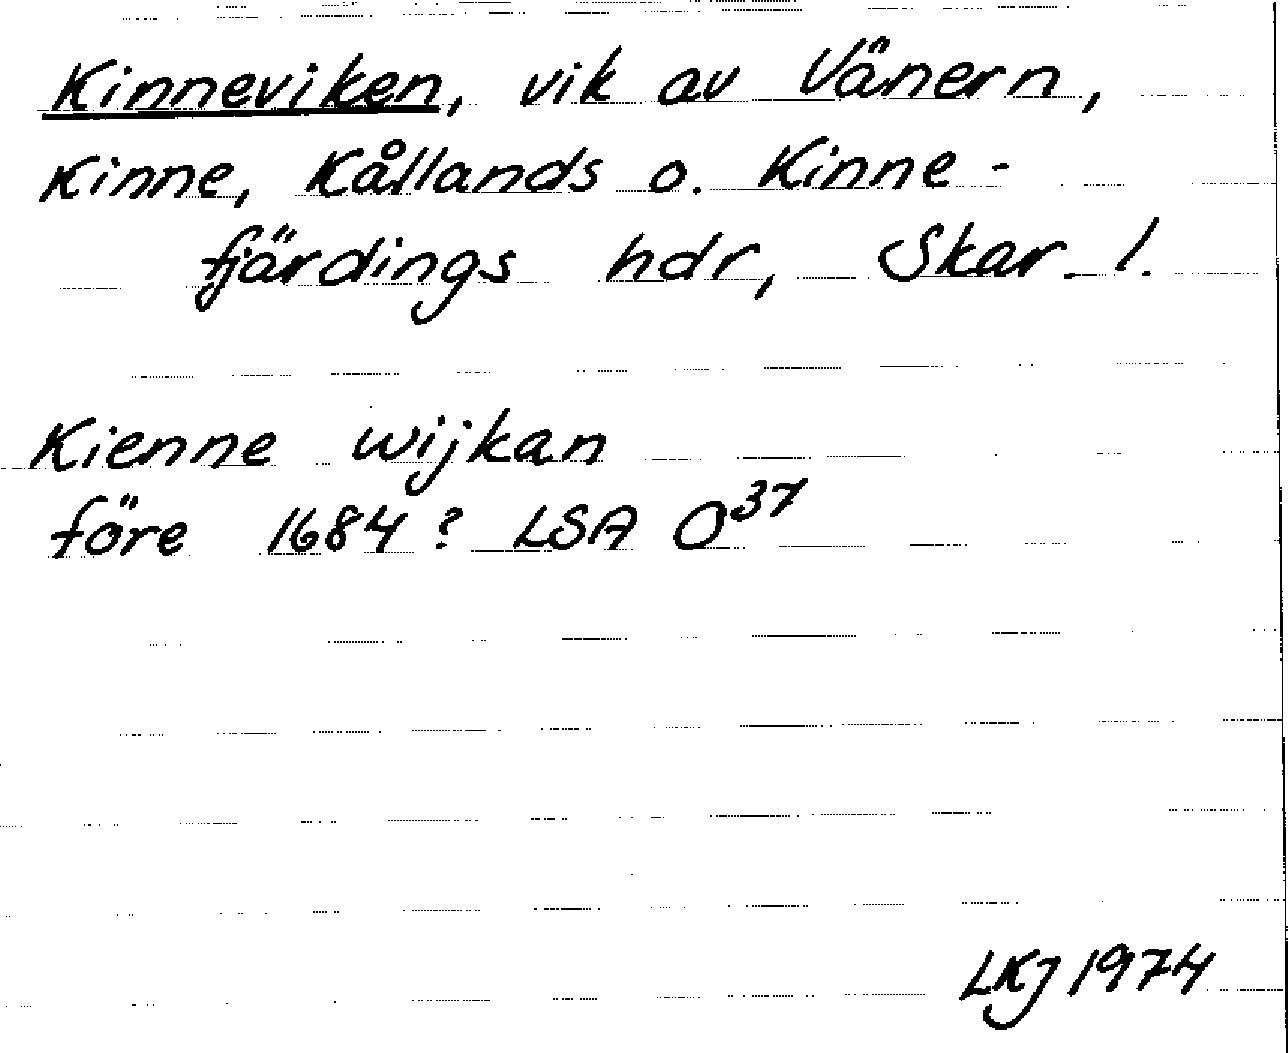 Kinneviken, vik av Vänern,
Kinne, Kållands o. Kinne-
fjärdings hdr, Skar. l.
Kienne wijkan
före 1684? LSA O37
LKJ 1974